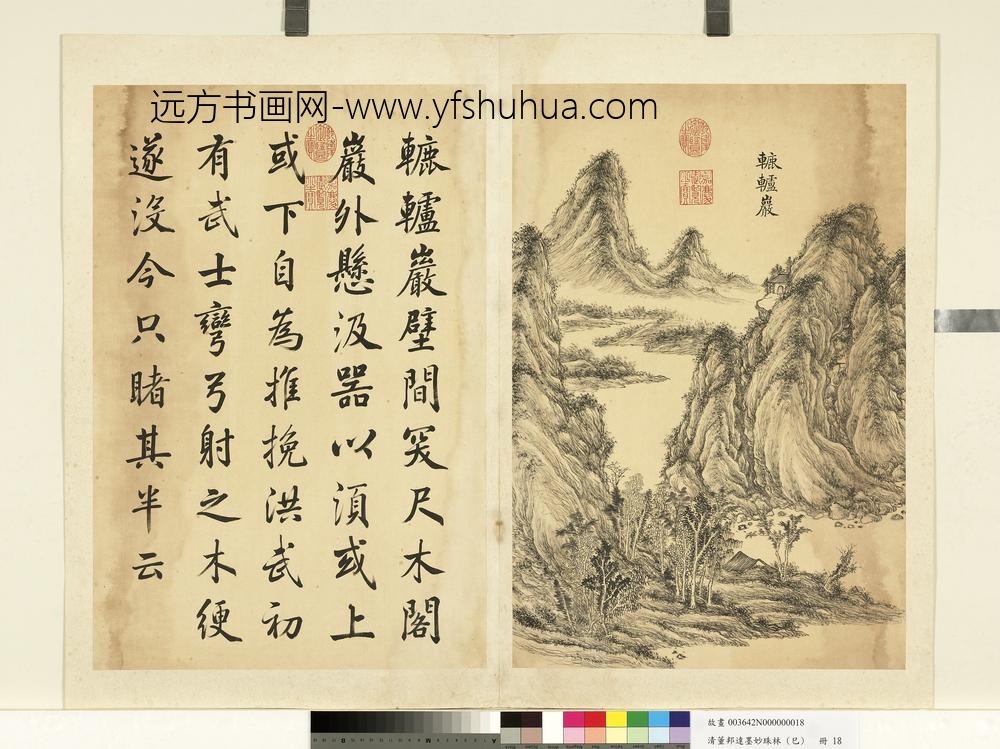 远方书画网-www.yfshuhua.com
轆轤巖
轆轤巖壁間突尺木閣
巖外懸汲器以須或上
或下自為推挽洪武初
有武士彎弓射之木绠
遂没今只睹其半云
故畫 003642N000000018
清董邦達墨妙珠林（巳） 冊 18